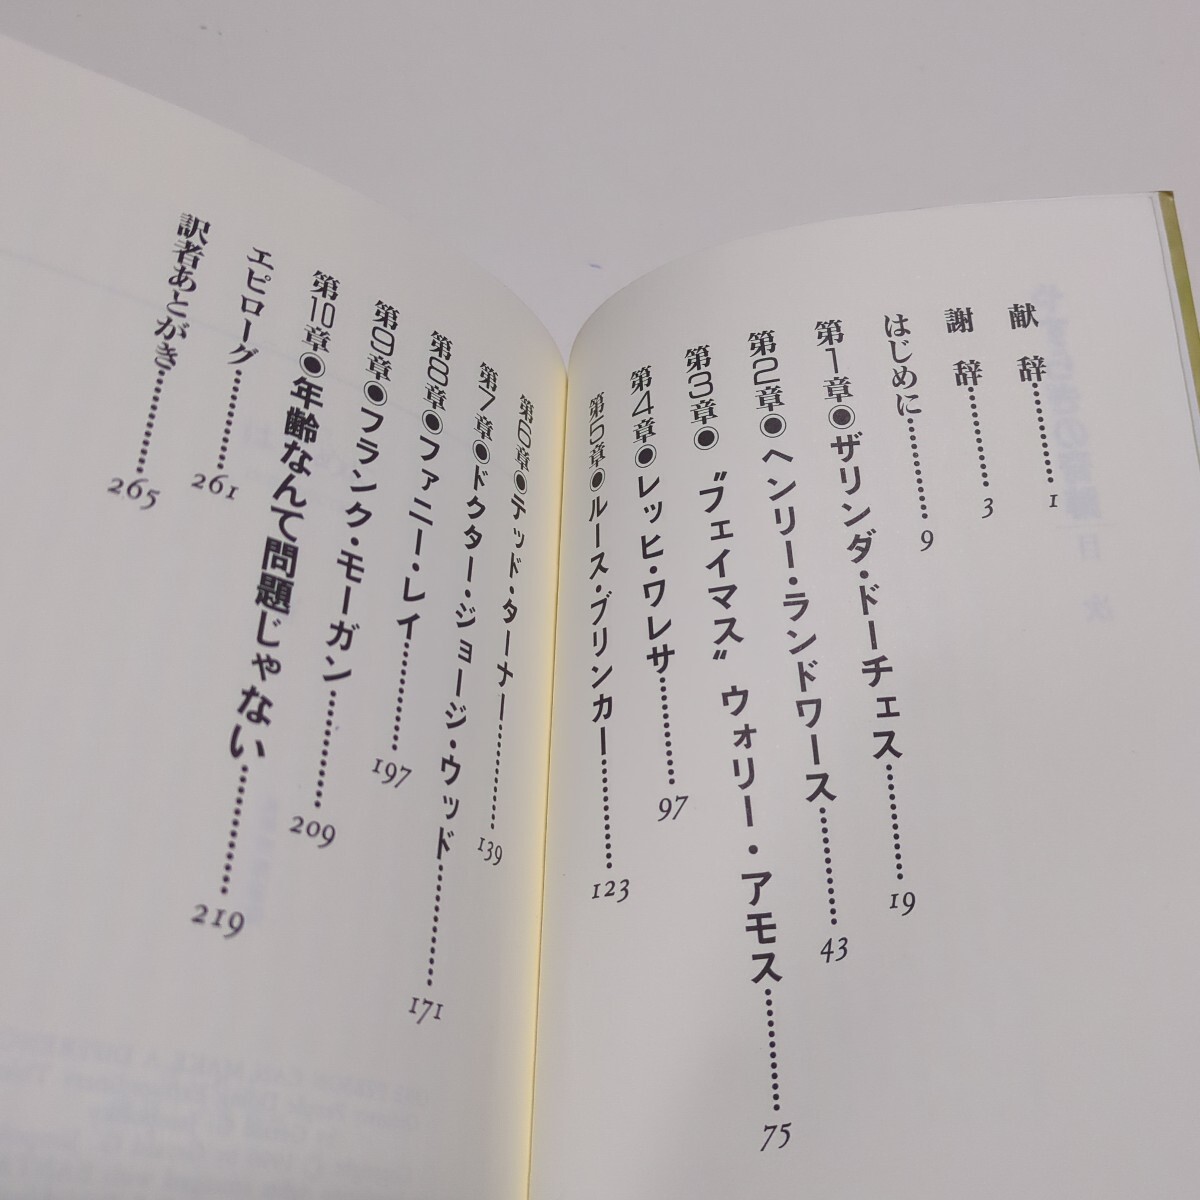 献辞………1
謝辞………3
はじめに………9
第1章◉ザリンダ・ドーチェス………19
第2章◉ヘンリー・ランドワース………43
第3章◉〝フェイマス〟ウォリー・アモス………75
第4章◉レッヒ・ワレサ………97
第5章◉ルース・ブリンカー………123
第6章◉テッド・ターナー………139
第7章◉ドクター・ジョージ・ウッド………171
第8章◉ファニー・レイ………197
第9章◉フランク・モーガン………209
第10章◉年齢なんて問題じゃない………219
エピローグ………261
訳者あとがき………265